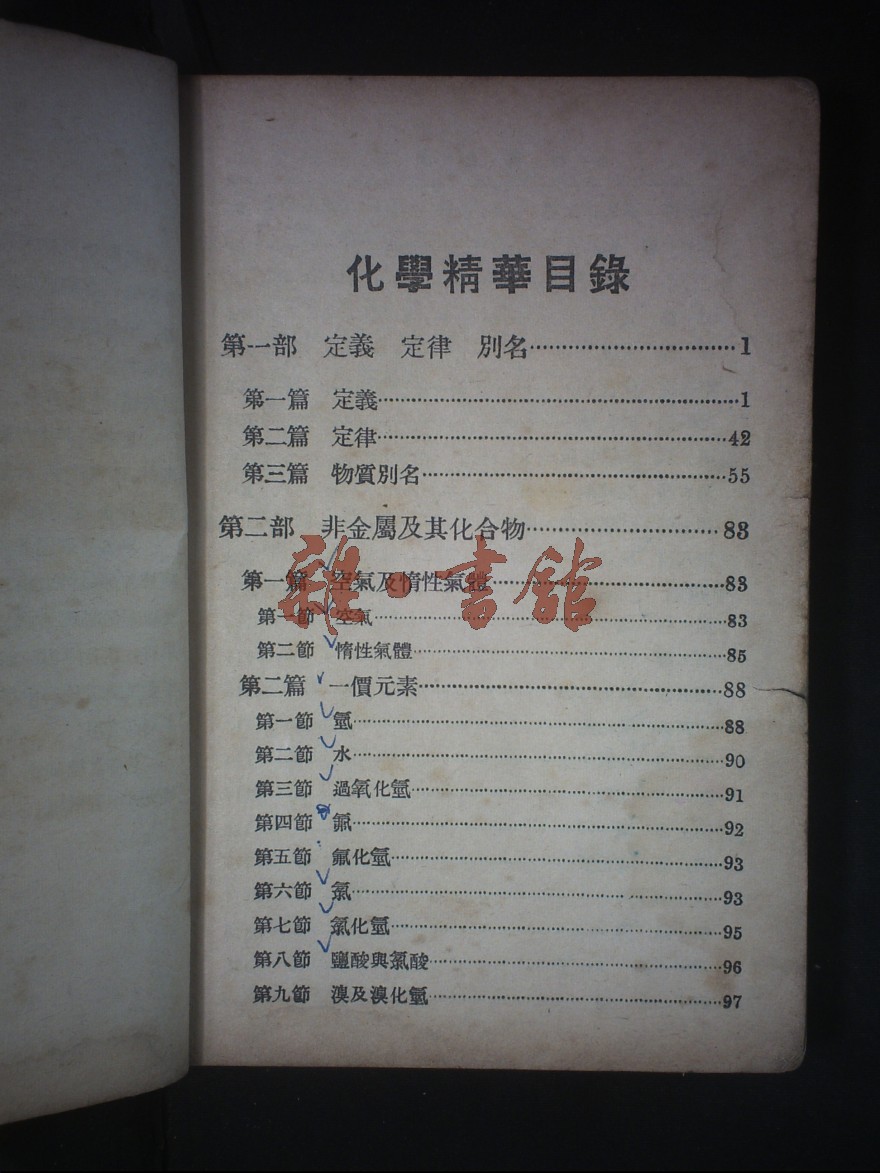 化學精華目錄
第一部 定義 定律 別名……………………………1
第一篇 定義……………………………………………1
第二篇 定律……………………………………………42
第三篇 物質別名………………………………………55
第二部 非金屬及其化合物……………………………83
第一篇 空氣及惰性氣體………………………………83
雜·書館
第一節 空氣……………………………………………83
第二節 惰性氣體………………………………………85
第二篇 一價元素………………………………………88
第一節 氫………………………………………………88
第二節 水………………………………………………90
第三節 過氧化氫………………………………………91
第四節 氟………………………………………………92
第五節 氟化氫…………………………………………93
第六節 氯………………………………………………93
第七節 氯化氫…………………………………………95
第八節 鹽酸與氯酸……………………………………96
第九節 溴及溴化氫……………………………………97